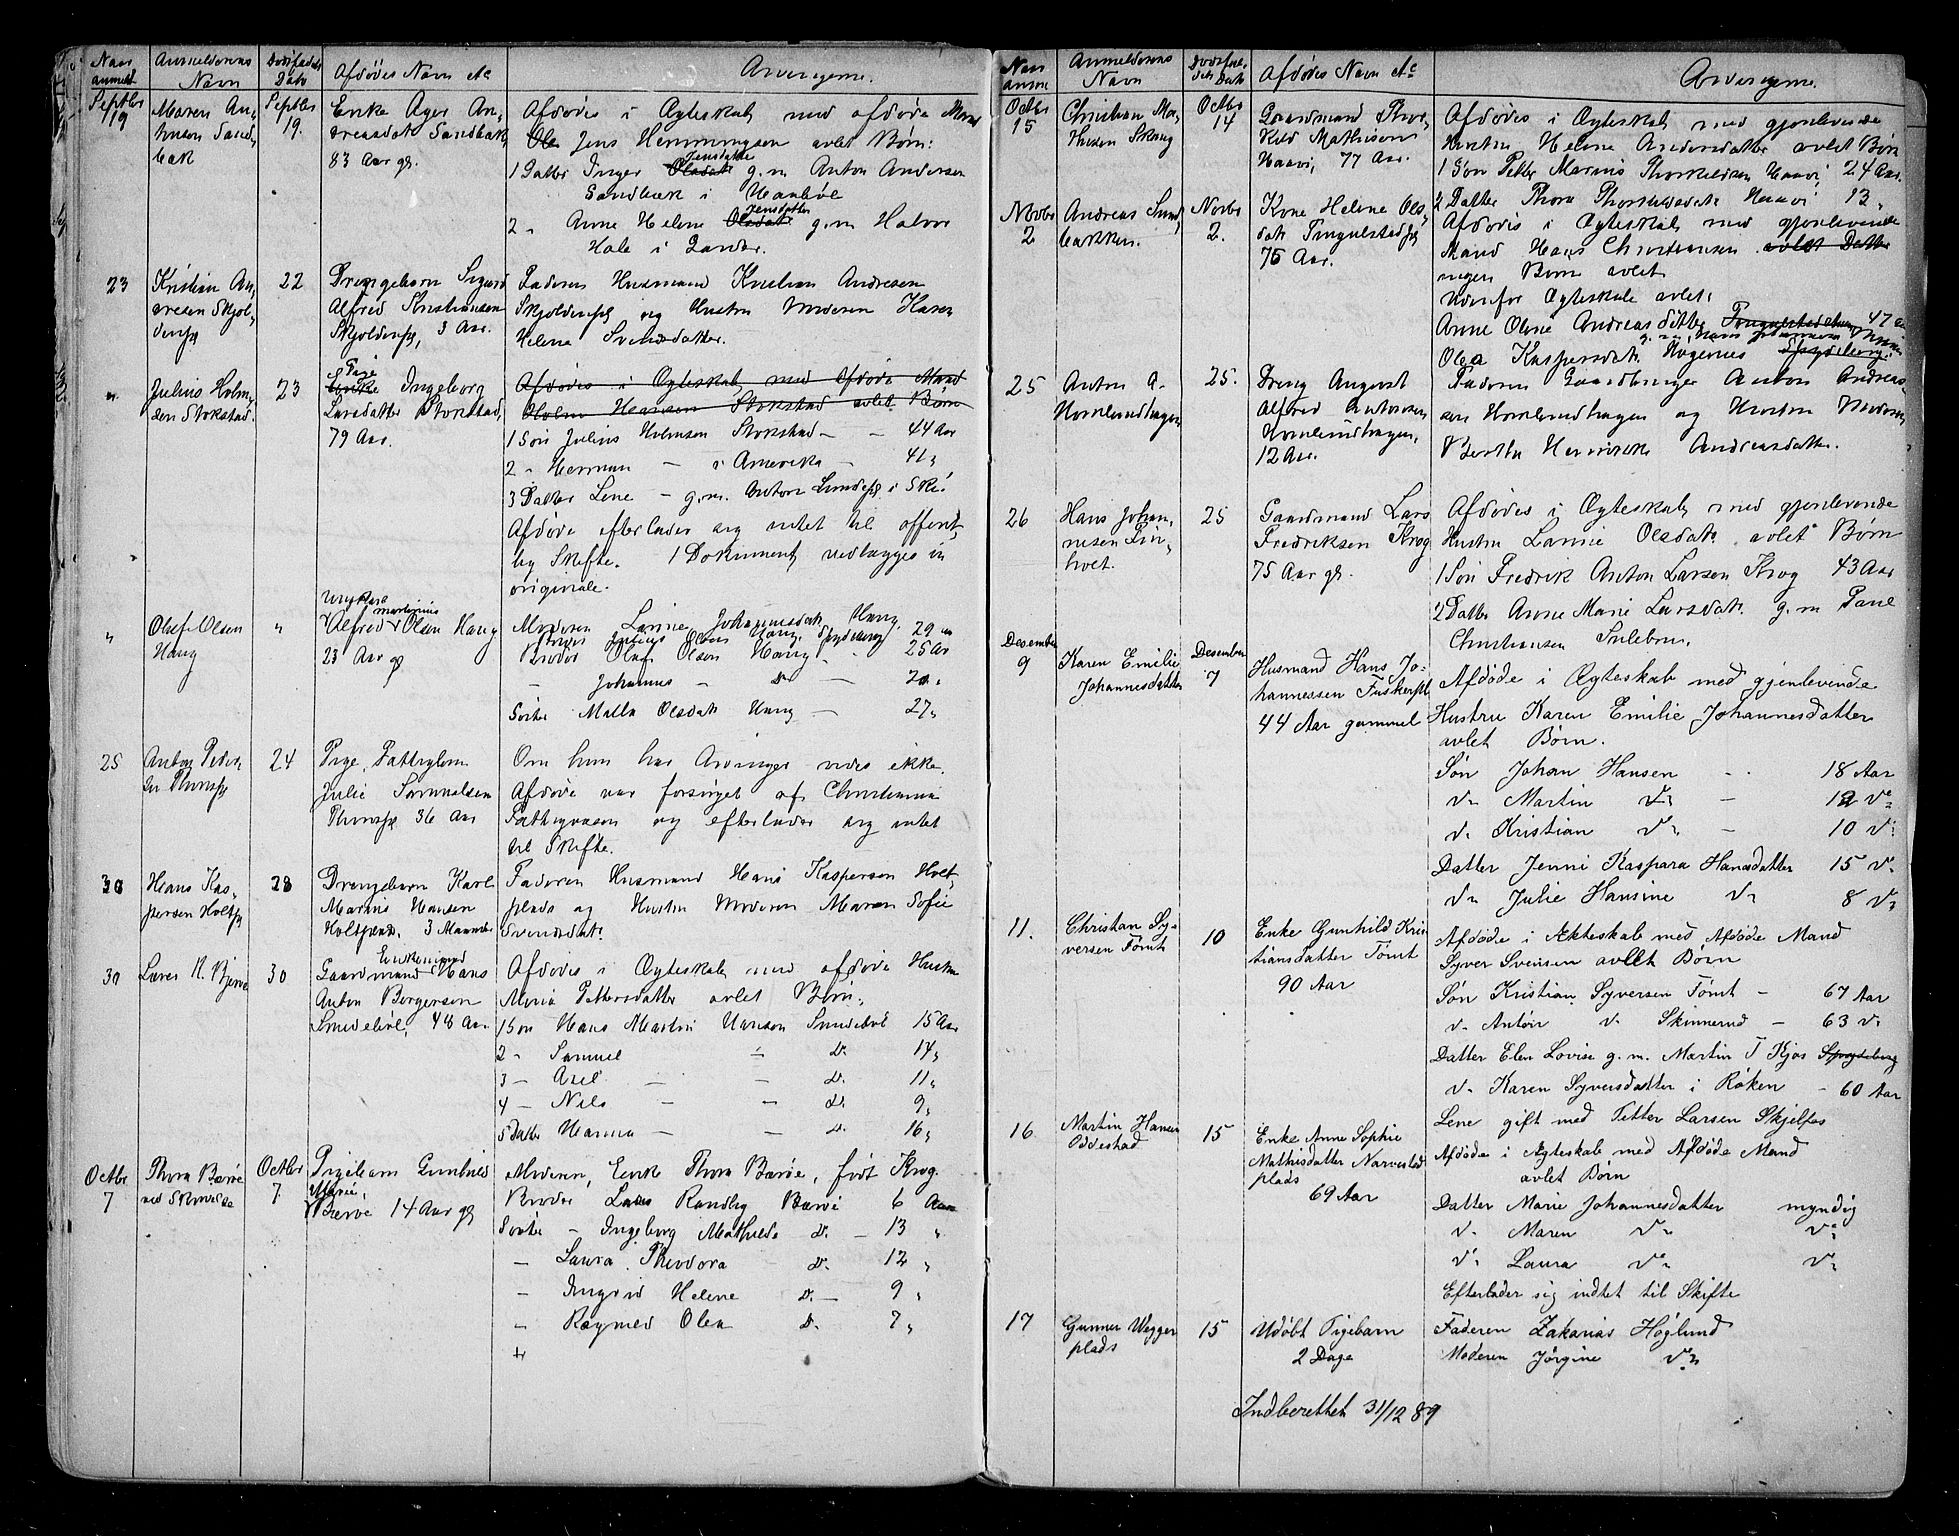 Naar anmeldt
Anmelderens Navn
Dødsfaldets Dato
Afdødes Navn &c
Arvingerne.
Septbr 19
Maren An,
hnsen Sand,
bæk
Septbr 19.
Enke Ager An,
dreasdatr Sandbæk,
83 Aar gl.
Afdødes i Ægteskab med afdøde Mand
Ole Jens Hemmingsen avlet Børn:
Jensdatter
1 Datter Inger Olsdatr g.m. Anton Andersen
Sandbæk i
Jensdatter
2 „ Anne Helene Olsdatr g.m. Halvor
Hole i
23
Kristian An,
dresen Skjol,
denpl
22
Drengebarn Sigurd
Alfred Kristiansen
Skjoldenpl, 3 Aar.
Faderen Husmand Kristian Andresen
Skjoldenpl og Hustru Moderen Karen
Helene Svendsdatter.
„
Julius Holm,
sen Stokstad.
23
Pige
Enke Ingeborg
Larsdatter Stokstad,
79 Aar.
Afdødes i Ægteskab med afdøde Mand
Holm Hansen Stokstad avlet Børn
1 Søn Julius Holmsen Stokstad — — 44 Aar
2 „ Herman — i Amerika — 41 „
3 Datter Lene — g.m. Anton Lundepl i Ski.
Afdøde efterlader sig intet til offent,
lig Skifte. 1 Dokument vedlægges in
originale.
„
Oluf Olsen
Haug
„
Ungkarl
Martinius
Alfred Olsen Haug
23 Aar gl
Moderen Lavine Johannesdatr Haug.
Broder Julius Olsen Haug, Spydeberg 29 „
Broder Oluf Olsen Haug — 25 Aar
— Johannes — Do —
Søster Malla Olsdatr Haug — 27 „
25
Anton Peder,
sen Thonspl
24
Pige, Fattiglem
Julie Samuelsen
Thonspl 36 Aar
Om hun har Arvinger vides ikke.
Afdøde var forsørget af Christiania
Fattigvæsen og efterlader sig intet
til Skifte.
30
Hans Kas,
persen Holtpl
28
Drengebarn Karl
Marius Hansen
Holtplads. 3 Maaneder
Faderen Husmand Hans Kaspersen Holt,
plads og Hustru Moderen Maren Sofie
Svendsdatr
30
Lares N. Bjerve
30
Enkemand
Gaardmand Hans
Anton Borgersen
Smedebøl, 48 Aar
Afdødes i Ægteskab med afdøde Hustru
Maria Pettersdatter avlet Børn,
1 Søn Hans Martin Hansen Smedebøl 15 Aar
2 „ Samuel — Do 14 „
3 — Axel — — Do 11 „
4 — Nils — — Do 9 „
5 Datter Hanna — — Do 16 „
Octbr 7
Thora Bærøe
ved Skonede
Octbr 7.
Pigebarn Gunhild
Marie,
Bærøe 14 Aar gl
Moderen, Enke Thora Bærøe, født Krog
Broder Lars Randby Bærøe 6 Aar
Søster — Ingeborg Mathilde Do — 13 „
— Laura Theodora Do 12 „
— Ingrid Helene Do — 9 „
— Ragnhild Olea Do 7 „
Naar anm
Anmelderens Navn
Dødsfal
dets Dato
Afdødes Navn &c
Arvingerne.
Octbr 15
Christian Ma,
thisen Skaug
Octbr 14
Gaardmand Thor,
kild Mathisen
Haavi, 77 Aar.
Afdødes i Ægteskab med gjenlevende
Hustru Helene Andersdatter avlet Børn
1 Søn Petter Marius Thorkildsen Haavi, 24 Aar.
2 Datter Thora Thorkildsdatr Haavi 13 „
Novbr 2
Andreas Sund,
bakken.
Novbr 2.
Kone Helene Ols,
datr Tingulstadpl
75 Aar.
Afdødes i Ægteskab med gjenlevende
Mand Hans Christiansen avlet Datter
ingen Børn avlet
Udenfor Ægteskab avlet:
Anne Oline Andreasdatter Tingulstadeie 47 Aar
Olea Kaspersdatr Hogenes Spydeberg.
25
Anton A.
Hornlundhagen
25.
Dreng August
Alfred Antonsen
Hornlundhagen,
12 Aar.
Faderen Gaardbruger Anton Andreas,
sen Hornlundhagen og Hustru Moderen
Berthe Henrikke Andreasdatter.
26
Hans Johan,
nesen Lin,
holt.
25
Gaardmand Lars
Fredriksen Krog
75 Aar gl.
Afdødes i Ægteskab med gjenlevende
Hustru Lavine Olsdatr avlet Børn
1 Søn Fredrik Anton Larsen Krog 43 Aar
2 Datter Anne Marie Larsdatr g.m Paul
Christiansen Sulebru.
Desember 9
Karen Emilie
Johannesdatter
Desember 7
Husmand Hans Jo-
hannessen Fuskerpl
44 Aar gammel
Afdøde i Ægteskab med gjenlevende
Hustru Karen Emilie Johannesdatter
avlet Børn.
Søn Johan Hansen — 18 Aar
do Martin do — 12 do
do Kristian do — 10 do
Datter Jenni Kaspara Hansdatter 15 do
do Julie Hansine do 8 do
11.
Christian Sy-
versen Tømt
10
Enke Gunhild Kris
tiansdatter Tømt
90 Aar
Afdøde i Ækteskab med Afdøde Mand
Syver Svensen avlet Børn
Søn Kristian Syversen Tømt — 67 Aar
do Anton do Skinnerud — 63 do
Datter Elen Lovise g.m. Martin T Kjos Spydeberg
do Karen Syversdatter i Røken — 60 Aar
Lene gift med Petter Larsen Skjelfos
16
Martin Hansen
Oddestad
15
Enke Anne Sophie
Mathisdatter Narvestad
plads
69 Aar
Afdøde i Ægteskab med Afdøde Mand
avlet Børn
Datter Marie Johannesdatter myndig
do Maren do do
do Laura do do
Efterlader sig indtet til Skifte
17
Gunner Wegger
plads
15
Udøbt Pigebarn
2 Dage
Faderen Zakarias Høglund
Moderen Jørgine do
Indberettet 31/12 89